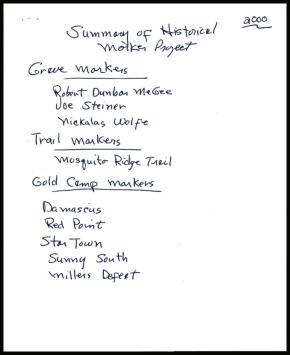 2000
Summary of Historical
Marker Project
Grave markers
Robert Dunbar McGee
Joe Steiner
Nickalas Wolfe
Trail markers
Mosquito Ridge Trail
Gold Camp markers
Damascus
Red Point
Star Town
Sunny South
Millers Defeat